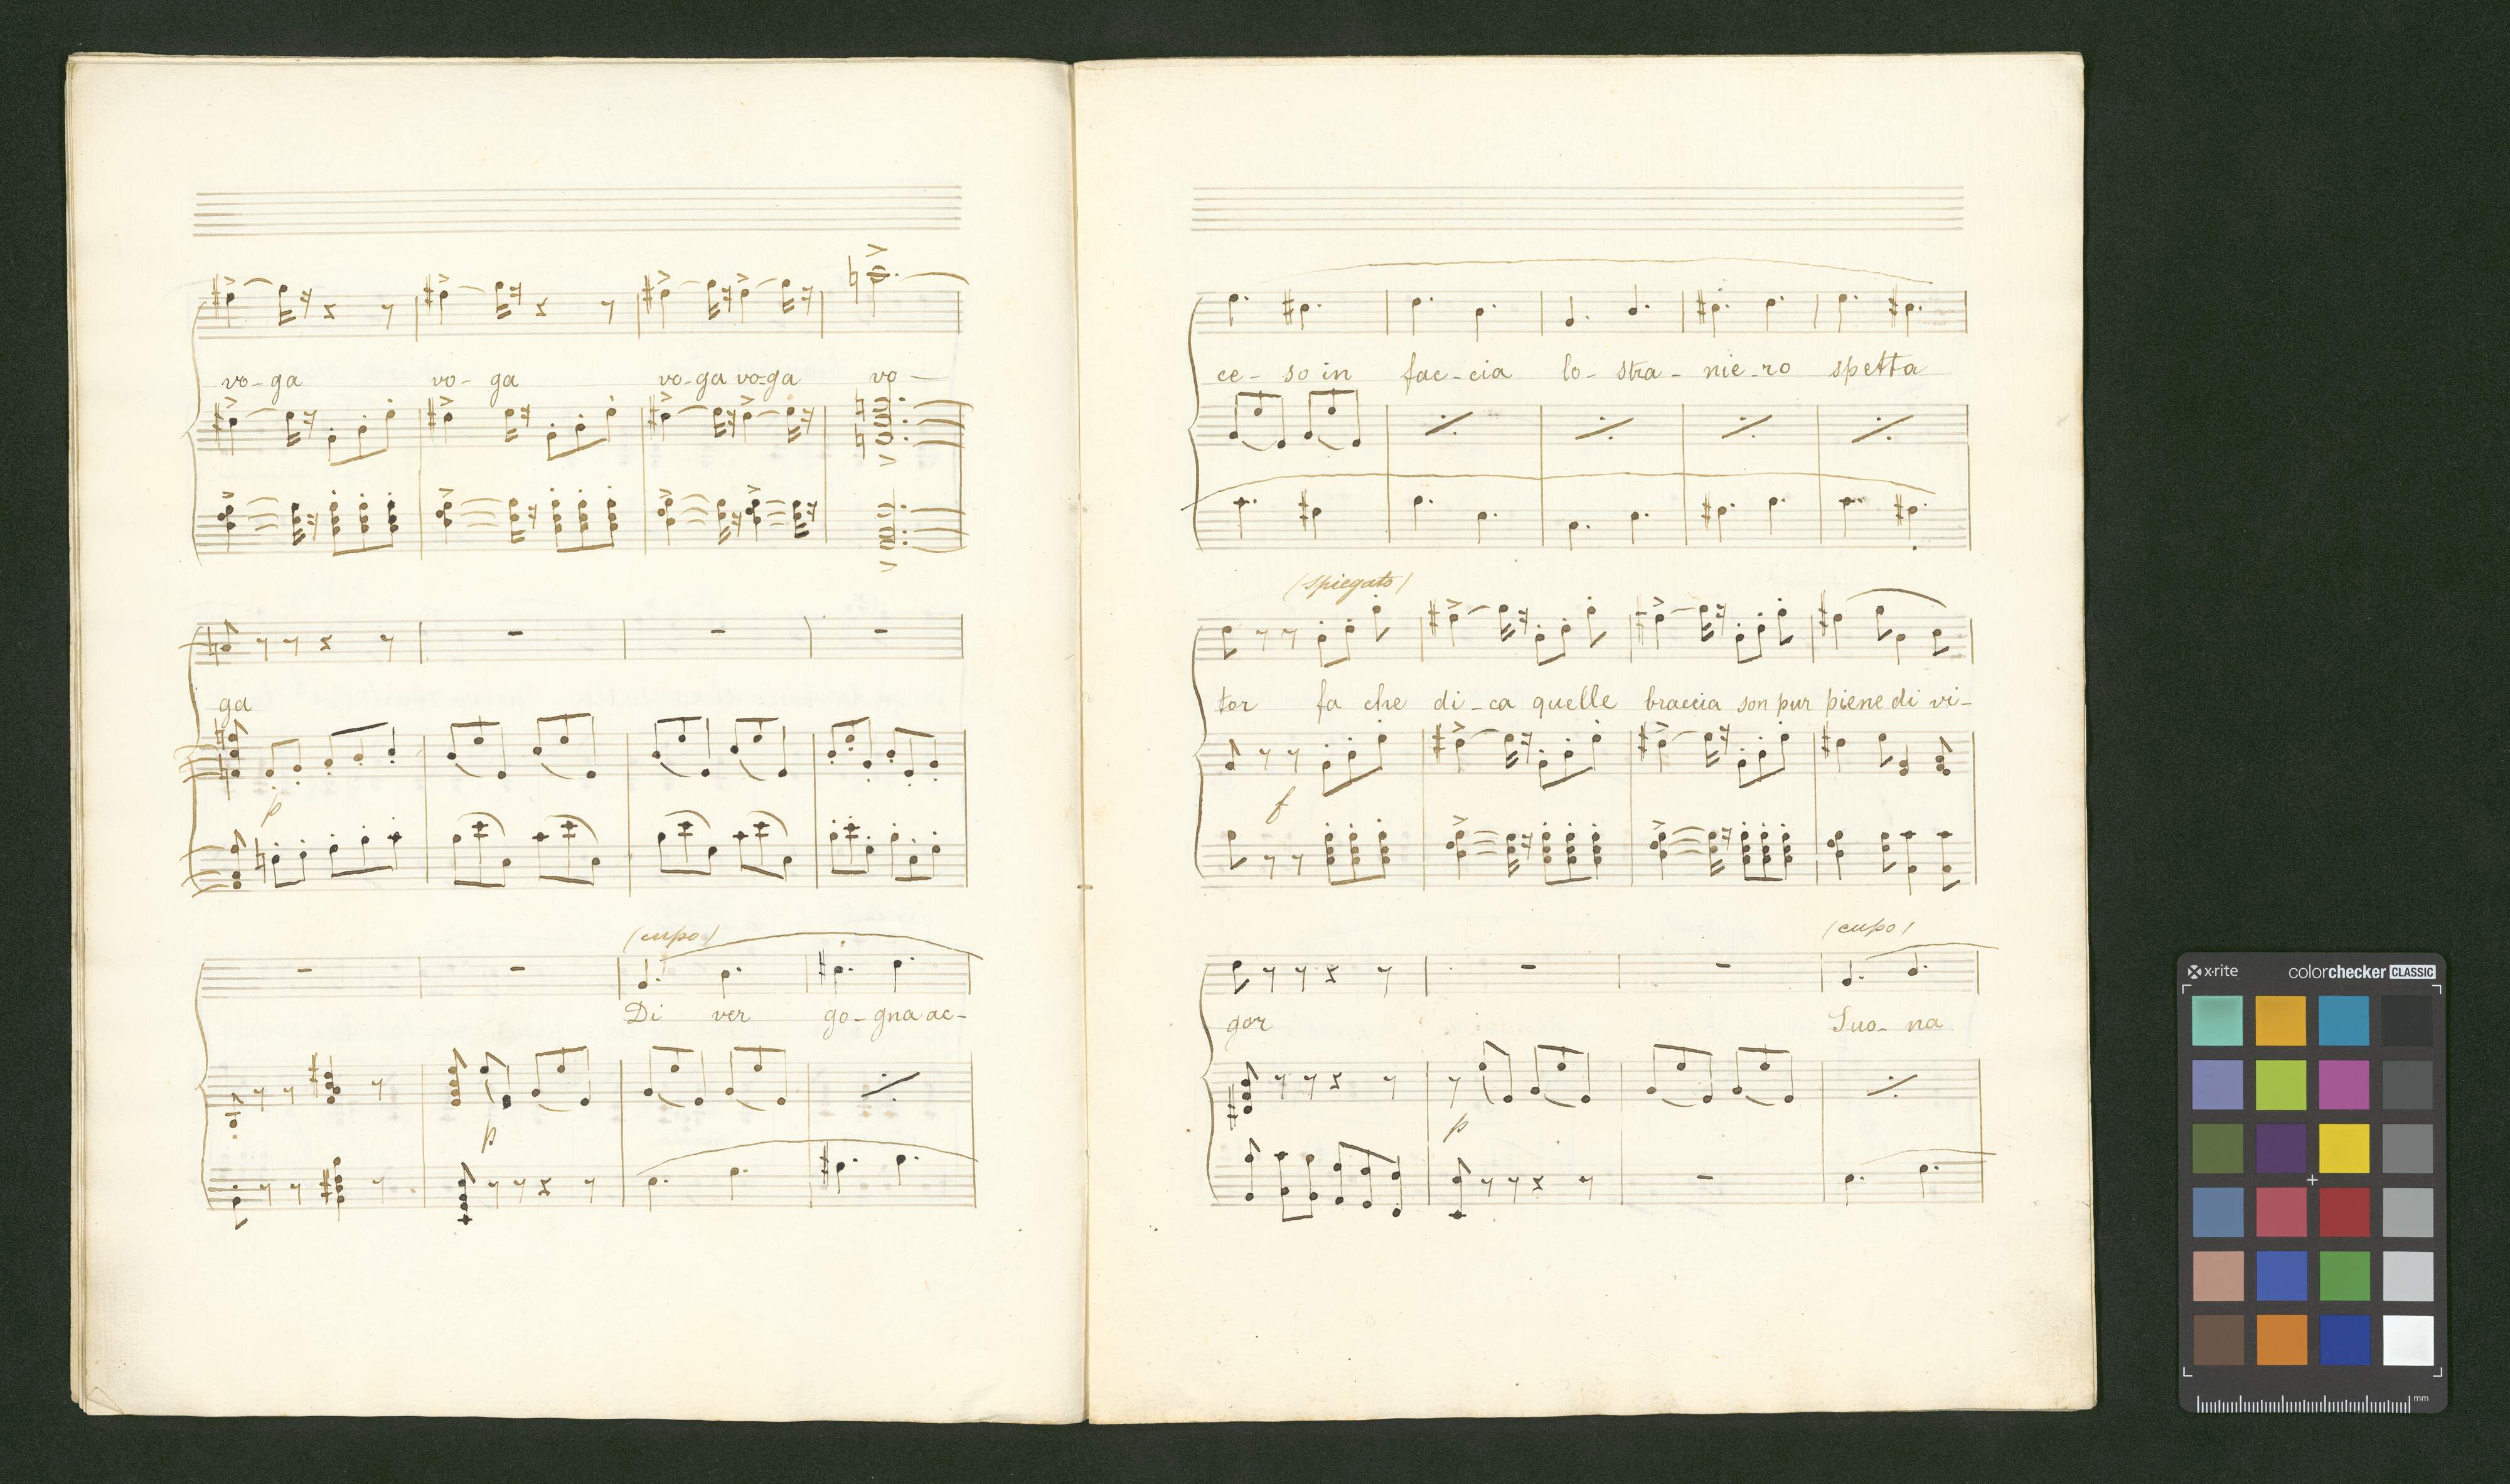 vo-ga vo-ga vo-ga vo-ga vo-
ga
p
(cupo)
Di ver go-gna ac-
p
ce-so in fac-cia lo-stra-nie-ro spetta
(spiegato)
tor fa che di-ca quelle braccia son pur piene di vi-
f
(cupo)
gor Suo-na
p
x-rite colorchecker CLASSIC
mm